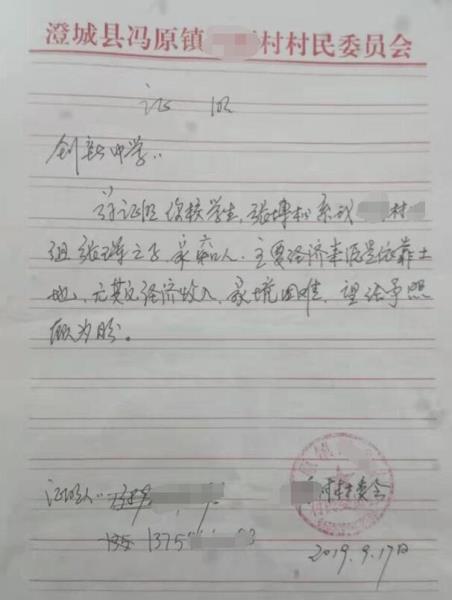 澄城县冯原镇 村村民委员会
证 明
创新中学:
兹证明你校学生,张博 系我 村
组张 之子,家 口人,主要经济来源是依靠土
地,无其它经济收入,家境困难,望给予照
顾为盼。
证明人:
村村委会
135 1375
2019.9.17日